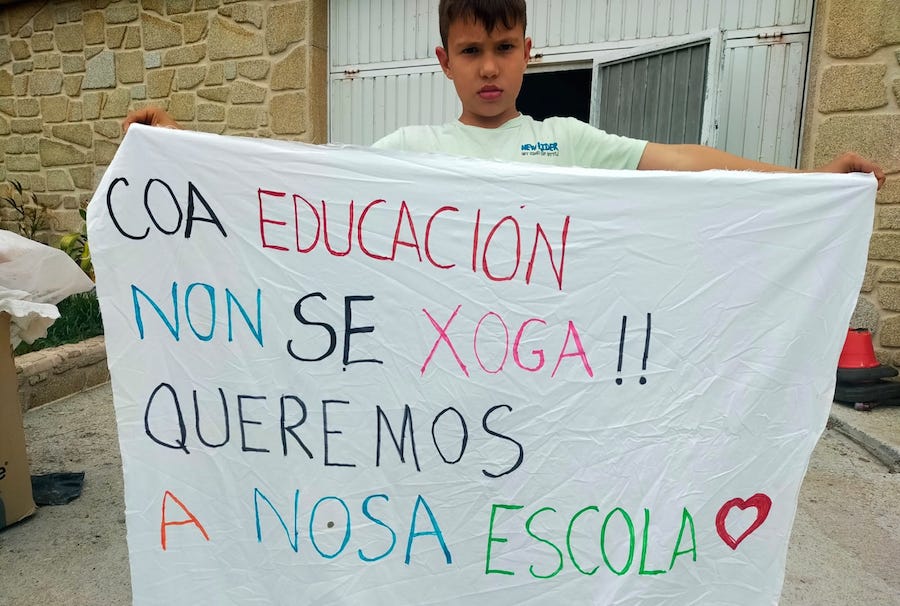 NEW RIDER
COA EDUCACIÓN
NON SE XOGA!!
QUEREMOS
A NOSA ESCOLA